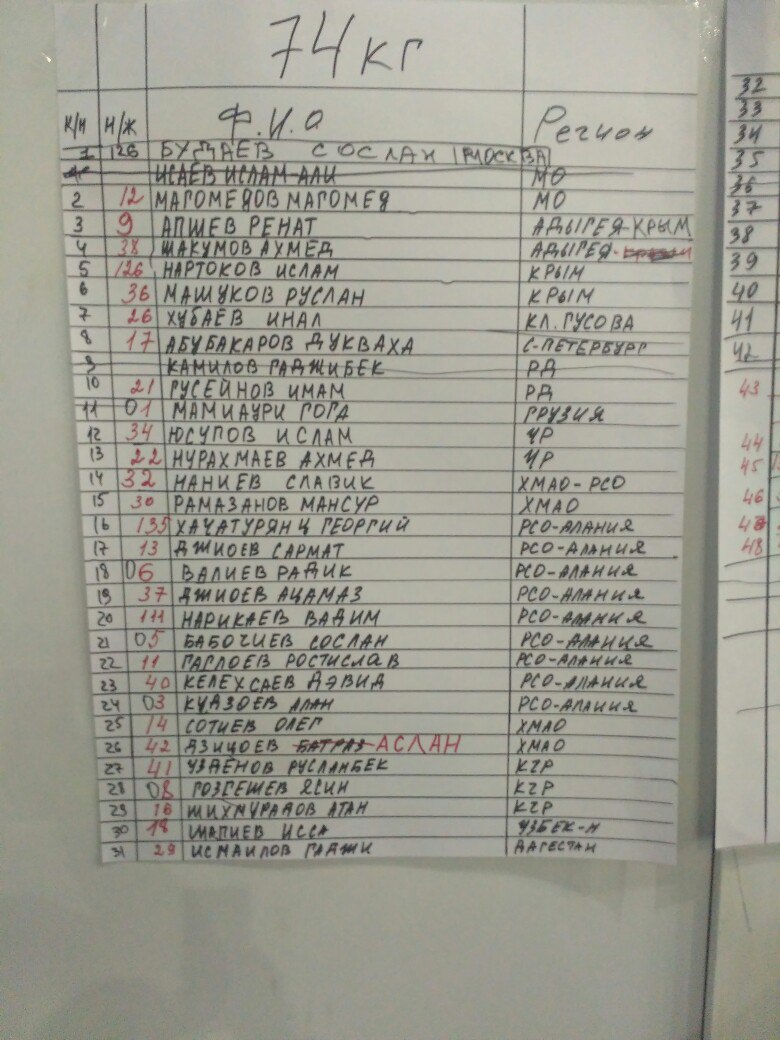 74 кг
К/И Н/Ж Ф.И.О Регион
1 126 БУДАЕВ СОСЛАН МОСКВА
ИСАЕВ ИСЛАМ-АЛИ МО
2 12 МАГОМЕДОВ МАГОМЕД МО
3 9 АПШЕВ РЕНАТ АДЫГЕЯ-КРЫМ
4 38 ШАКУМОВ АХМЕД АДЫГЕЯ-
5 126 НАРТОКОВ ИСЛАМ КРЫМ
6 36 МАШУКОВ РУСЛАН КРЫМ
7 26 ХУБАЕВ ИНАЛ КЛ.ГУСОВА
8 17 АБУБАКАРОВ ДУКВАХА С-ПЕТЕРБУРГ
9 КАМИЛОВ ГАДЖИБЕК РД
10 21 ГУСЕЙНОВ ИМАМ РД
11 01 МАМИАУРИ ГОГА ГРУЗИЯ
12 34 ЮСУПОВ ИСЛАМ ЧР
13 22 НУРАХМАЕВ АХМЕД ЧР
14 32 НАНИЕВ СЛАВИК ХМАО-РСО
15 30 РАМАЗАНОВ МАНСУР ХМАО
16 135 ХАЧАТУРЯНЦ ГЕОРГИЙ РСО-АЛАНИЯ
17 13 ДЖИОЕВ САРМАТ РСО-АЛАНИЯ
18 06 ВАЛИЕВ РАДИК РСО-АЛАНИЯ
19 37 ДЖИОЕВ АЦАМАЗ РСО-АЛАНИЯ
20 111 НАРИКАЕВ ВАДИМ РСО-АЛАНИЯ
21 05 БАБОЧИЕВ СОСЛАН РСО-АЛАНИЯ
22 11 ГАГЛОЕВ РОСТИСЛАВ РСО-АЛАНИЯ
23 40 КЕЛЕХСАЕВ ДЭВИД РСО-АЛАНИЯ
24 03 КУДЗОЕВ АЛАН РСО-АЛАНИЯ
25 14 СОТИЕВ ОЛЕГ ХМАО
26 42 ДЗИЦОЕВ БАТРАЗ АСЛАН ХМАО
27 41 УЗДЕНОВ РУСЛАНБЕК КЧР
28 08 ГОЗГЕШЕВ ЯСИН КЧР
29 16 ШИХМУРАДОВ АТАН КЧР
30 18 ШАПИЕВ ИССА УЗБЕК-Н
31 29 ИСМАИЛОВ ГАДЖИ ДАГЕСТАН
32
33
34
35
36
37
38
39
40
41
42
43
44
45
46
48